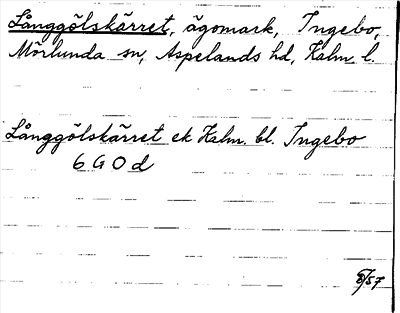 Långgölskärret, ägomark, Ingebo,
Mörlunda sn, Aspelands hd, Kalm. l.
Långgölskärret ek Kalm. bl. Ingebo
6 G O d
8/57